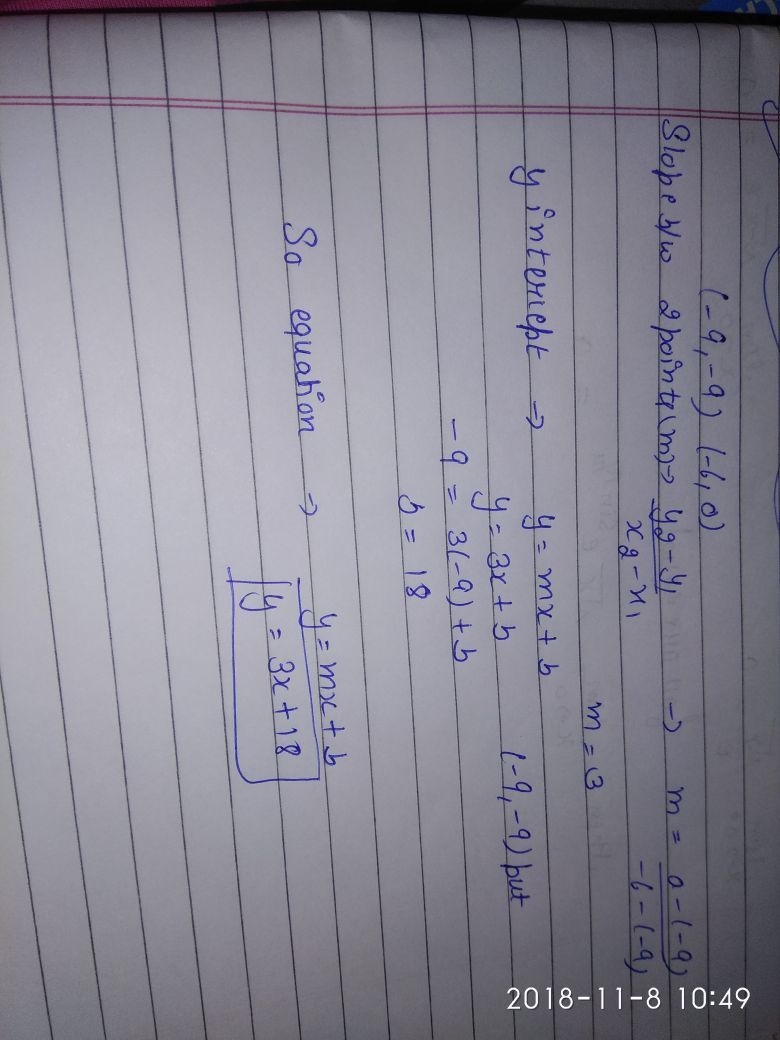 (-9,-9) (-6,0)
Slope b/w 2 points(m)→ y2-y1 → m = 0-(-9)
x2-x1 -6-(-9)
m = 3
y intercept → y = mx + b
y = 3x + b (-9,-9) put
-9 = 3(-9) + b
b = 18
So equation → y = mx + b
y = 3x + 18
2018-11-8 10:49